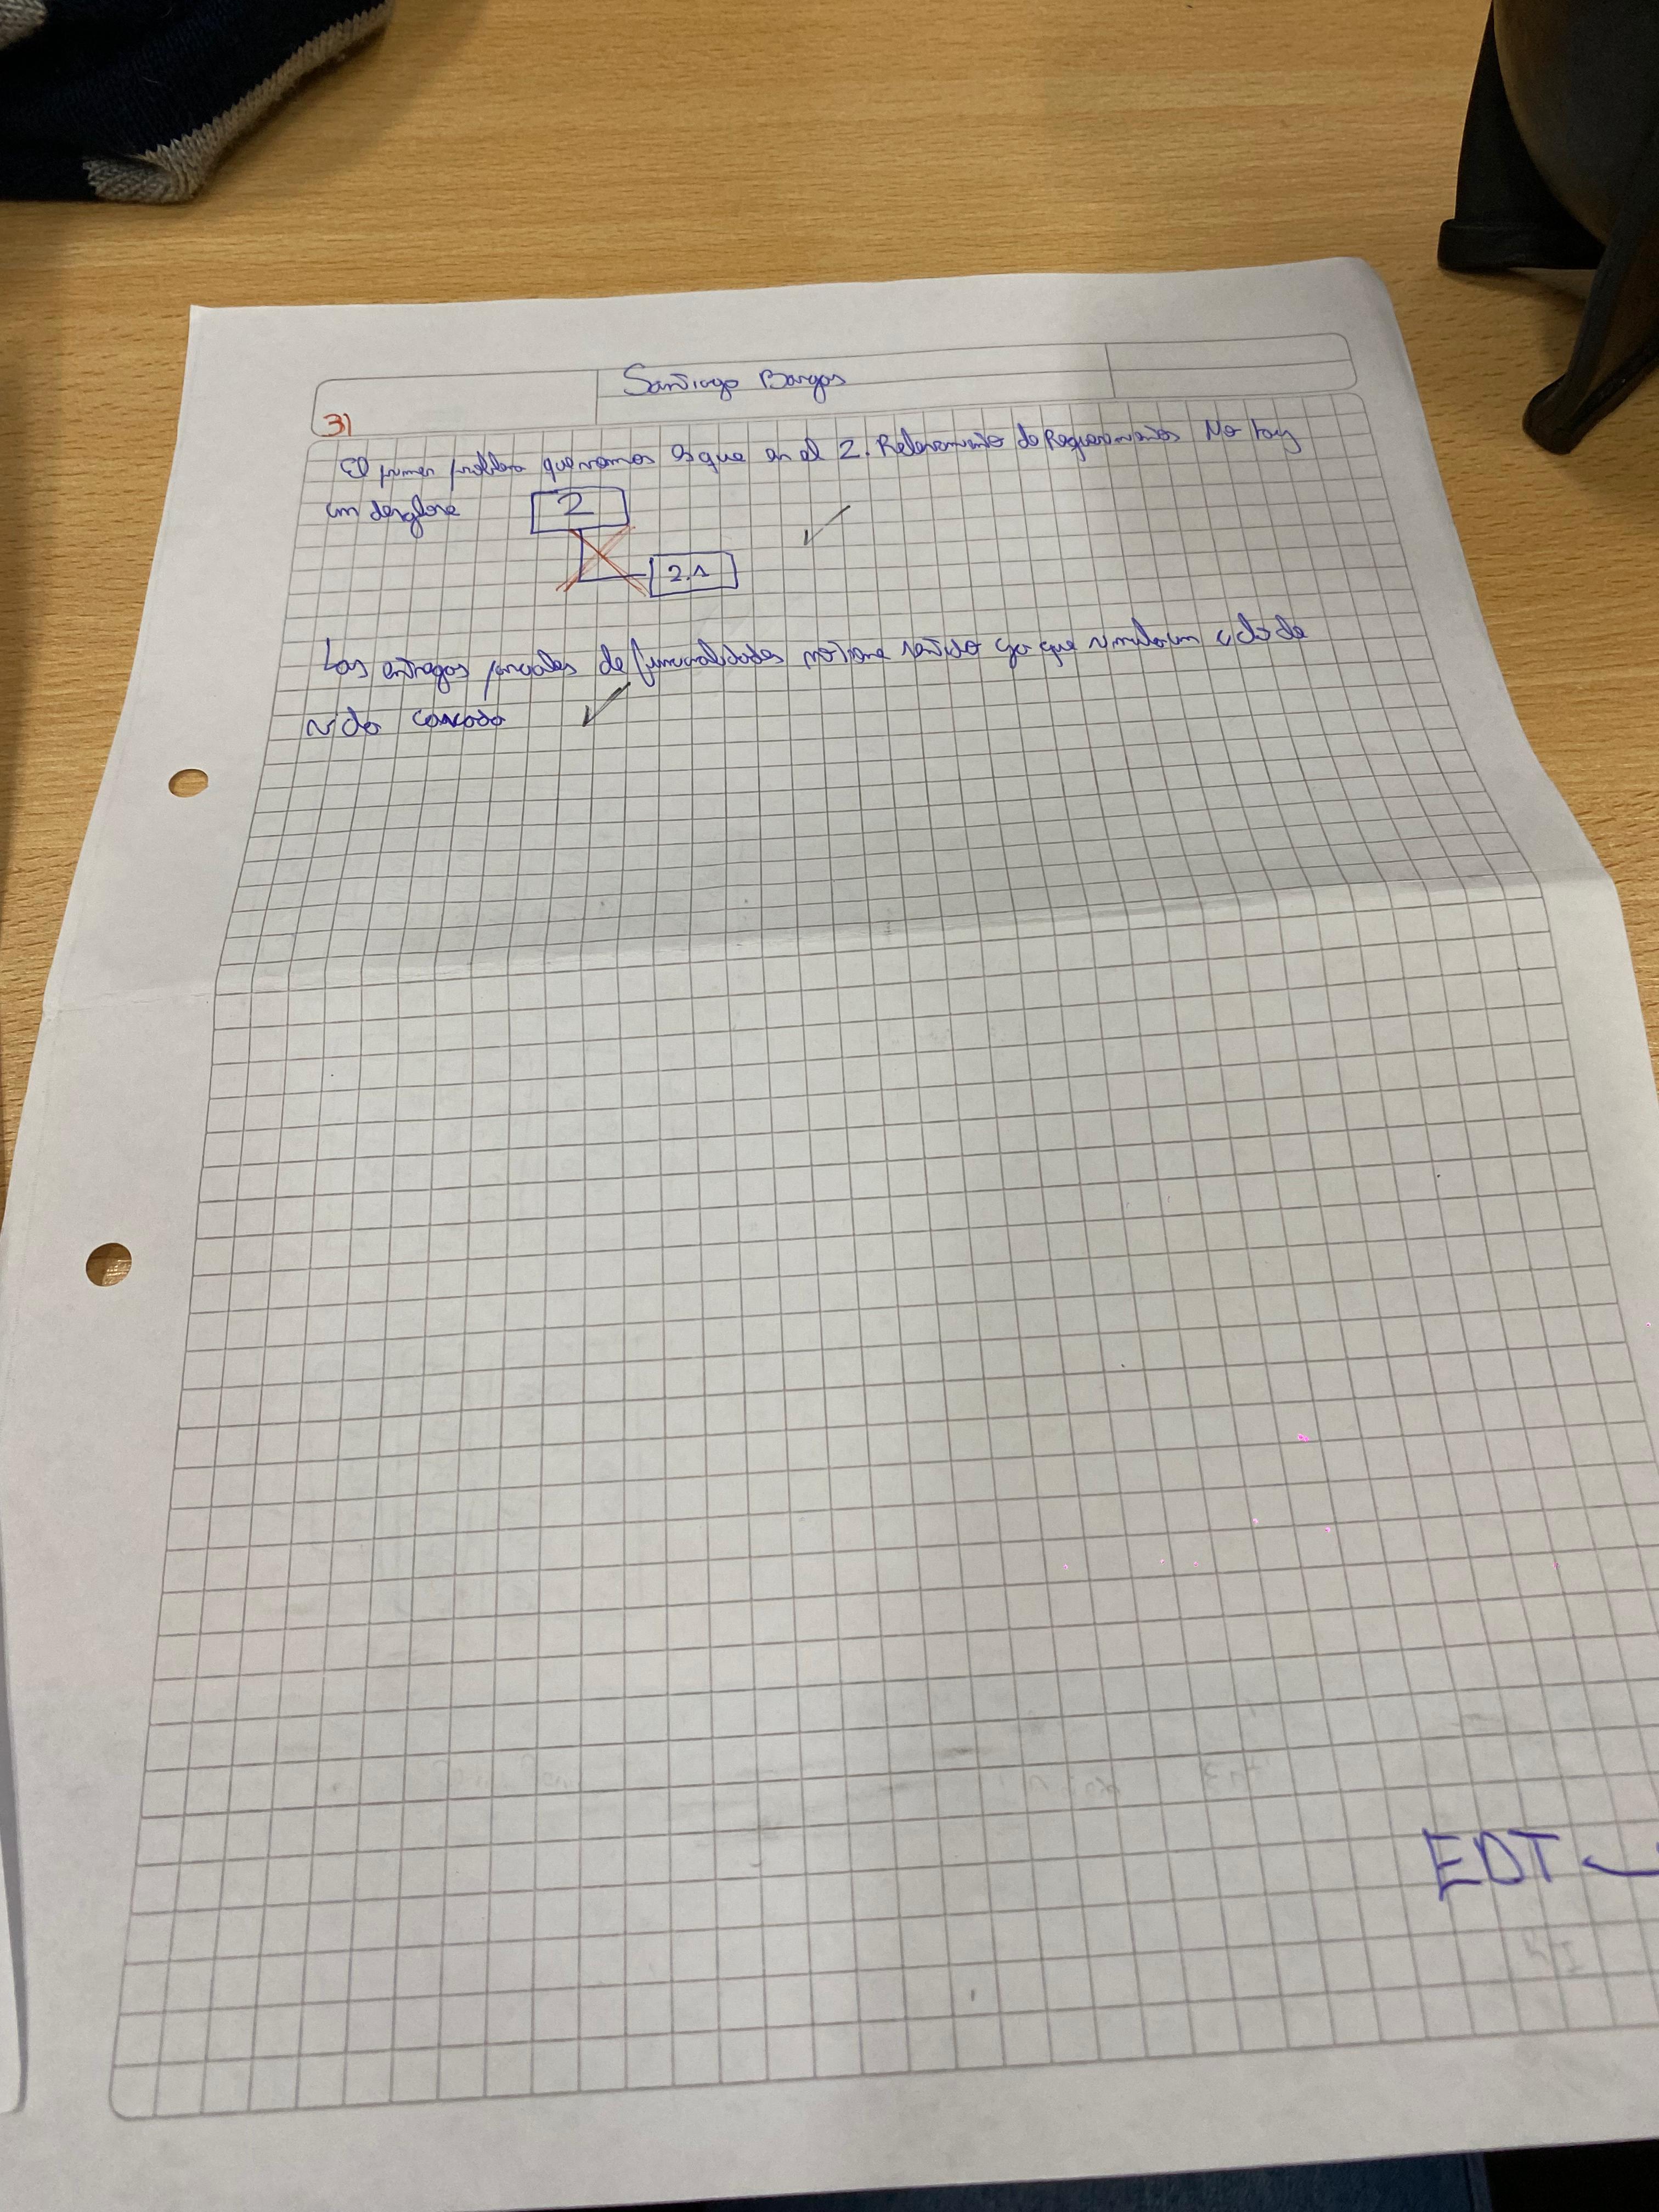 Santiago Bargas
3)
El primer problema que vemos es que en el 2. Relevamiento de Requerimientos No hay
un desglose
2
2.1
Las entregas parciales de funcionalidades no tiene sentido ya que simula un ciclo de
vida cascada
EDT